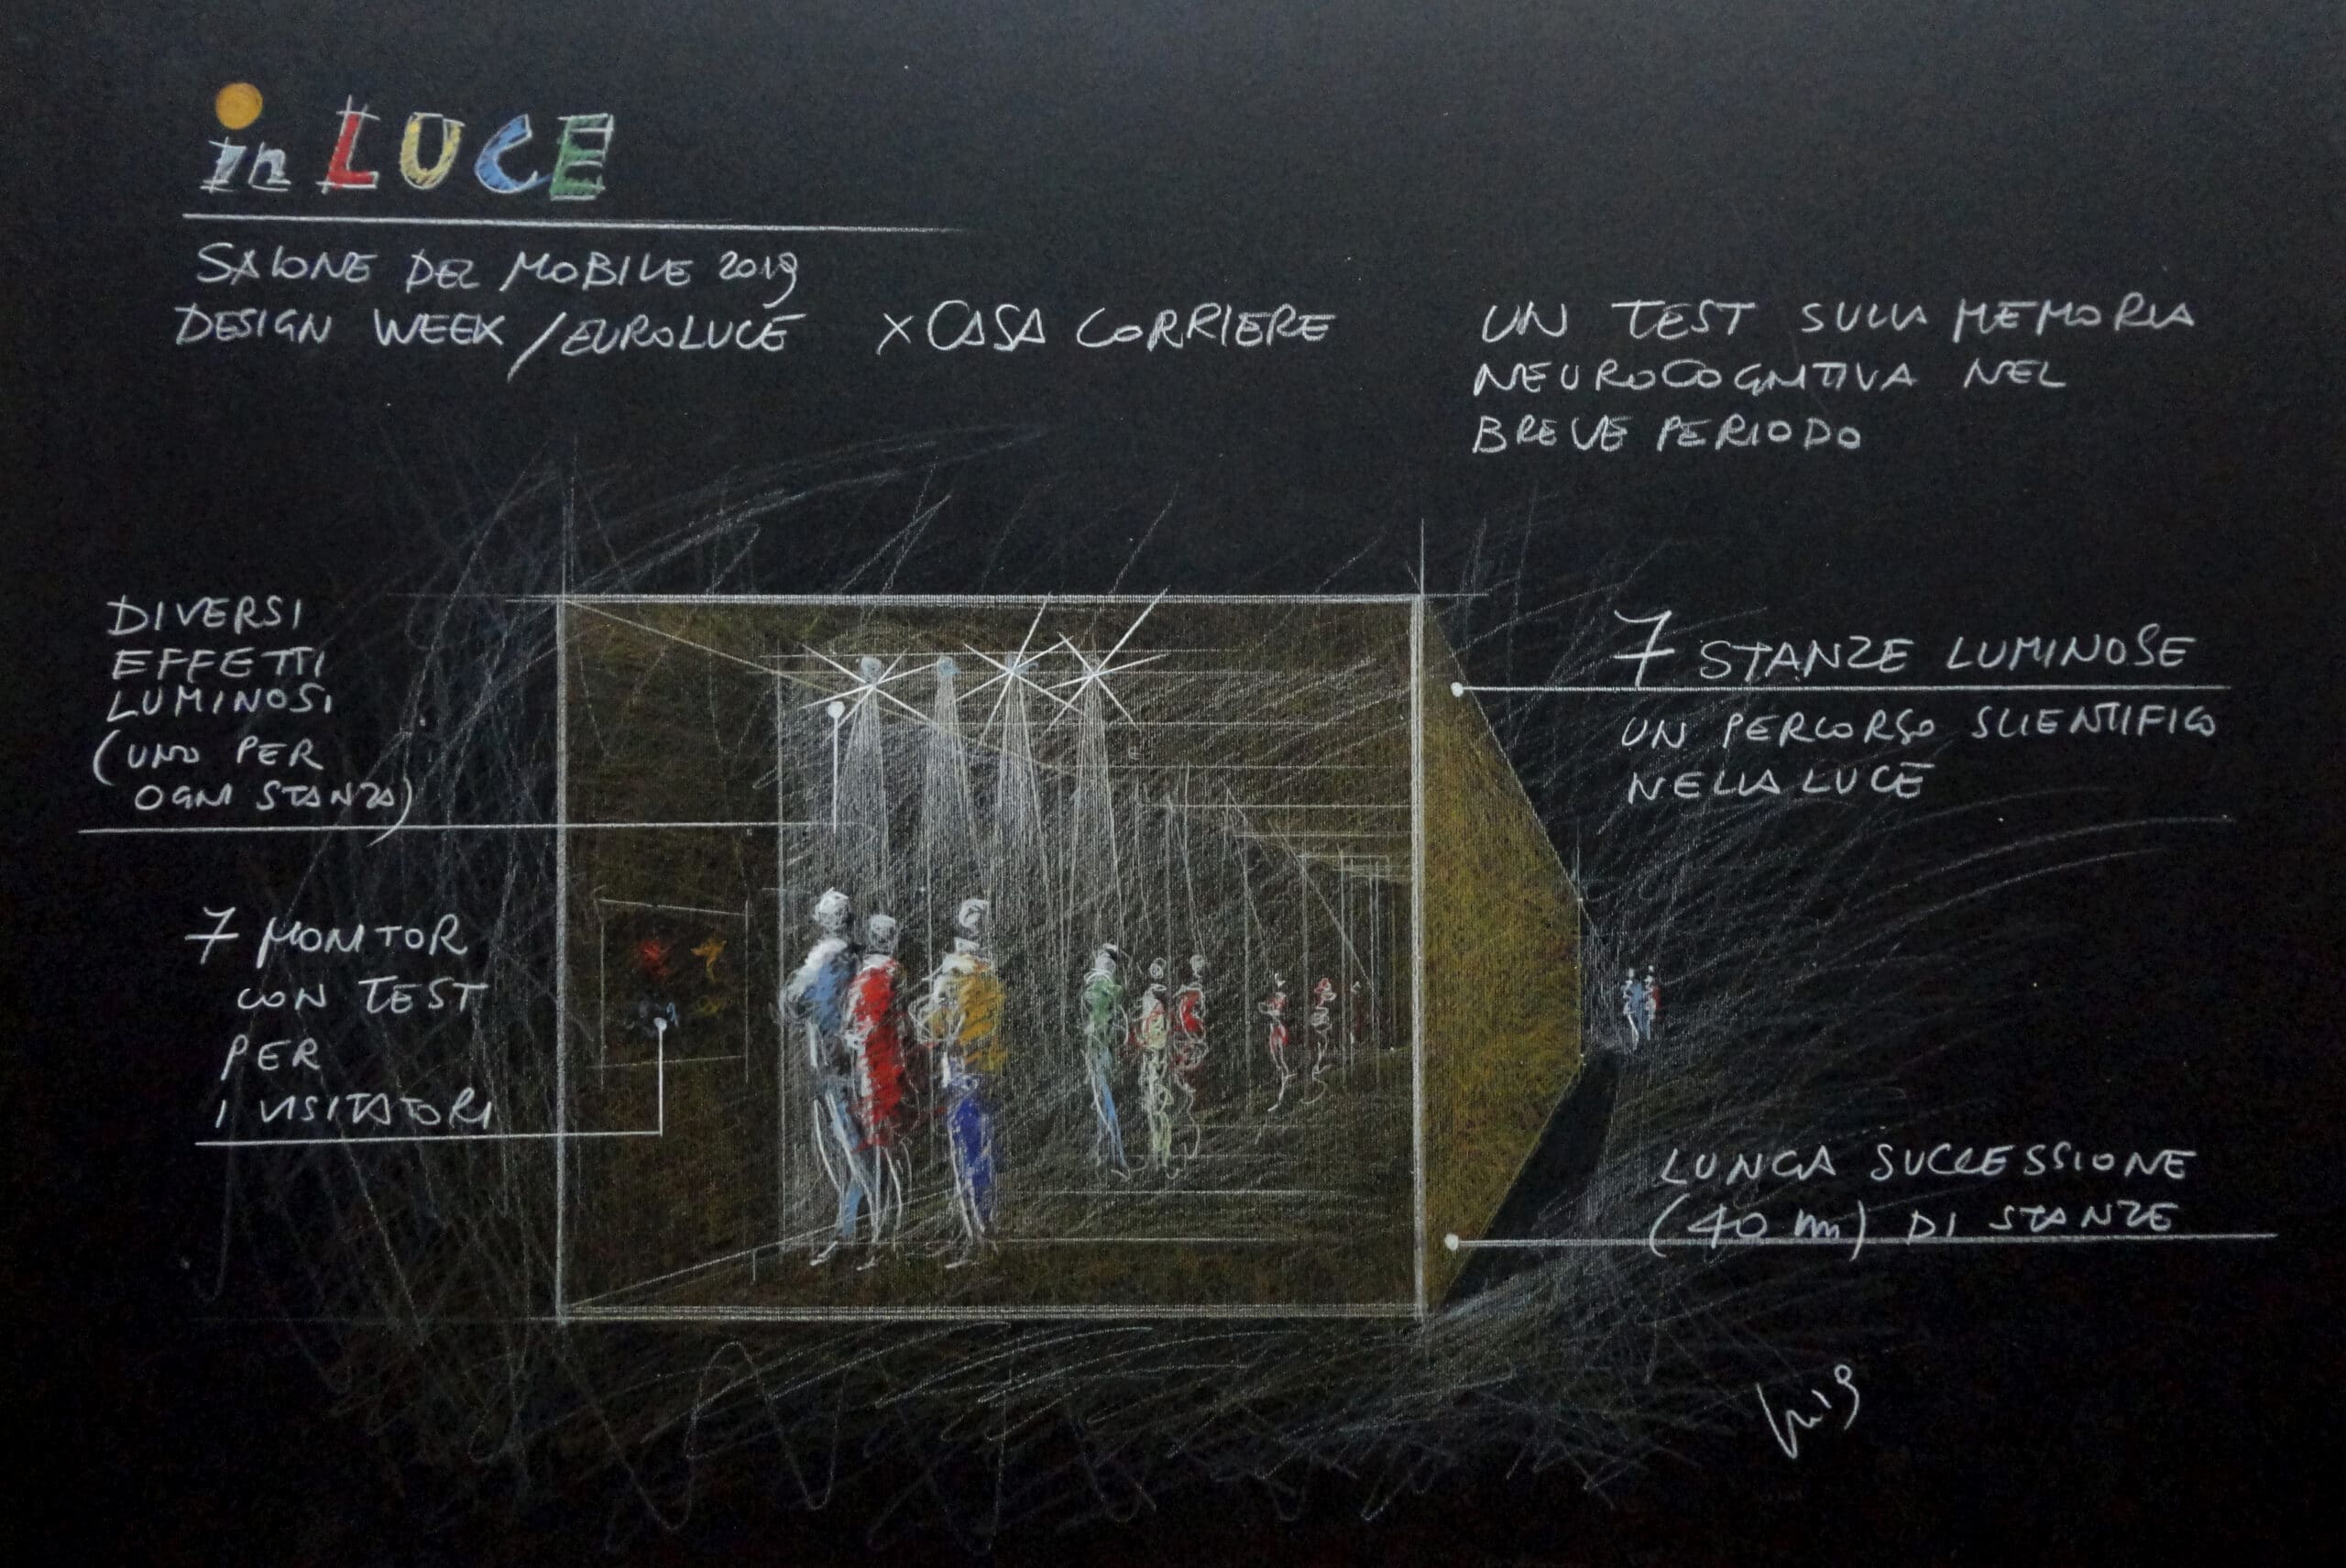 in LUCE
SALONE DEL MOBILE 2019
DESIGN WEEK / EUROLUCE x CASA CORRIERE
UN TEST SULLA MEMORIA
NEUROCOGNITIVA NEL
BREVE PERIODO
DIVERSI
EFFETTI
LUMINOSI
(UNO PER
OGNI STANZA)
7 MONITOR
CON TEST
PER
I VISITATORI
7 STANZE LUMINOSE
UN PERCORSO SCIENTIFICO
NELLA LUCE
LUNGA SUCCESSIONE
(40 m) DI STANZE